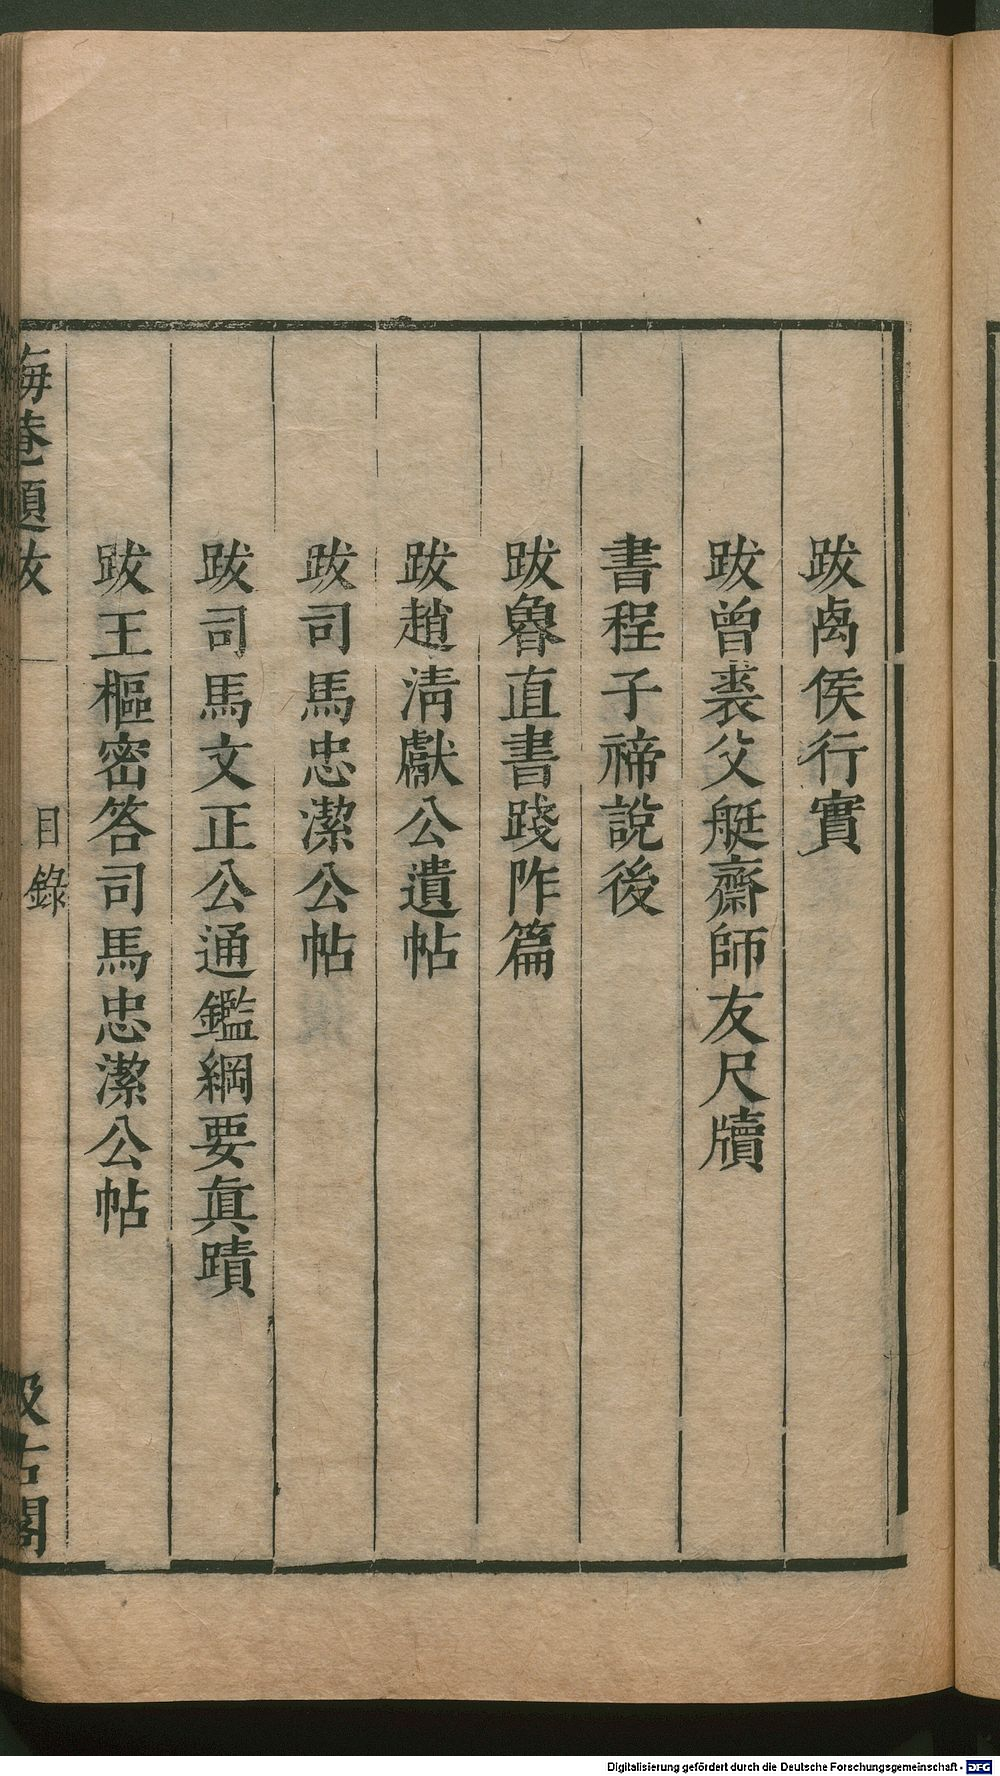 跋禼侯行實
跋曾裘父艇齋師友尺牘
書程子禘說後
跋魯直書踐阼篇
跋趙清獻公遺帖
跋司馬忠潔公帖
跋司馬文正公通鑑綱要眞蹟
跋王樞密答司馬忠潔公帖
晦菴題跋
目錄
汲古閣
Digitalisierung gefördert durch die Deutsche Forschungsgemeinschaft - DFG